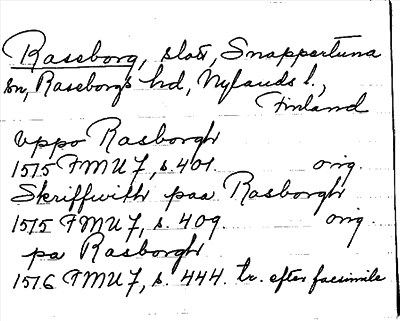 Raseborg, slott, Snappertuna
sn, Raseborgs hd, Nylands l.,
Finland
uppo Rasborgh
1515 FMU 7, s. 401. orig.
Skriffwith paa Rasborgh
1515 FMU 7, s. 409. orig.
pa Rasborgh
1516 FMU 7, s. 444. tr. efter facsimile